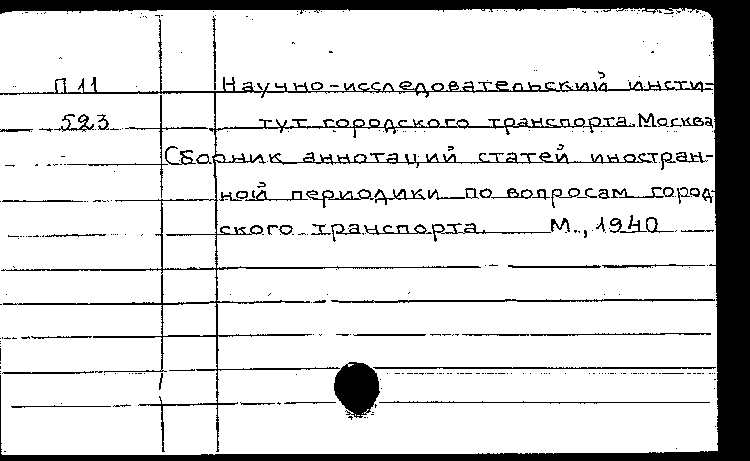 П 11 Научно-исследовательский инсти=
523 тут городского транспорта. Москва
Сборник аннотаций статей иностран-
ной периодики по вопросам город-
ского транспорта. М., 1940